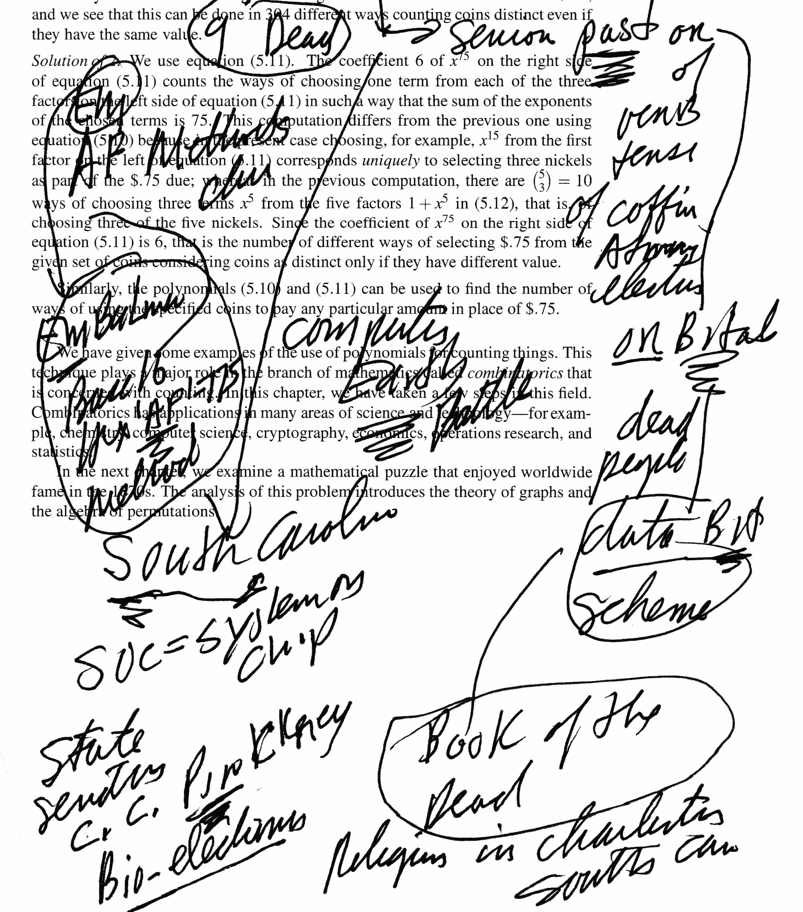 and we see that this can be done in 304 different ways counting coins distinct even if
they have the same value.
9 Dead
past on
of
Solution of 2. We use equation (5.11). The coefficient 6 of x^75 on the right side
of equation (5.11) counts the ways of choosing one term from each of the three
factors on the left side of equation (5.11) in such a way that the sum of the exponents
of the chosen terms is 75. This computation differs from the previous one using
equation (5.10) because in the present case choosing, for example, x^15 from the first
factor on the left of equation (5.11) corresponds uniquely to selecting three nickels
as part of the $.75 due; whereas in the previous computation, there are (5 3) = 10
ways of choosing three terms x^5 from the five factors 1 + x^5 in (5.12), that is, of
choosing three of the five nickels. Since the coefficient of x^75 on the right side of
equation (5.11) is 6, that is the number of different ways of selecting $.75 from the
given set of coins considering coins as distinct only if they have different value.
tense
of coffin
Similarly, the polynomials (5.10) and (5.11) can be used to find the number of
ways of using the specified coins to pay any particular amount in place of $.75.
on
We have given some examples of the use of polynomials for counting things. This
technique plays a major role in the branch of mathematics called combinatorics that
is concerned with counting. In this chapter, we have taken a few steps in this field.
Combinatorics has applications in many areas of science and technology—for exam-
ple, chemistry, computer science, cryptography, economics, operations research, and
statistics.
In the next chapter, we examine a mathematical puzzle that enjoyed worldwide
fame in the 1870s. The analysis of this problem introduces the theory of graphs and
the algebra of permutations.
computer
Earth
method
dead
people
data
scheme
South Carolina
SOC = System on
chip
State
C. C. Pinckney
Book of the
Dead
Religion in
South